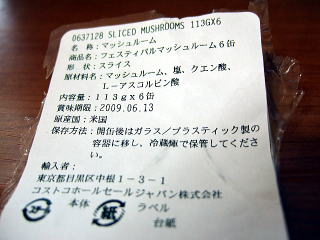 0637128 SLICED MUSHROOMS 113GX6
名 称:マッシュルーム
商品名:フェスティバルマッシュルーム6缶
形 状:スライス
原材料名:マッシュルーム、塩、クエン酸、
L-アスコルビン酸
内容量:113gx6缶
賞味期限:2009.06.13
原産国:米国
保存方法:開缶後はガラス/プラスティック製の
容器に移し、冷蔵庫で保管してくださ
い。
輸入者:
東京都目黒区中根1-3-1
コストコホールセールジャパン株式会社
スチール 本体 紙 ラベル
台紙